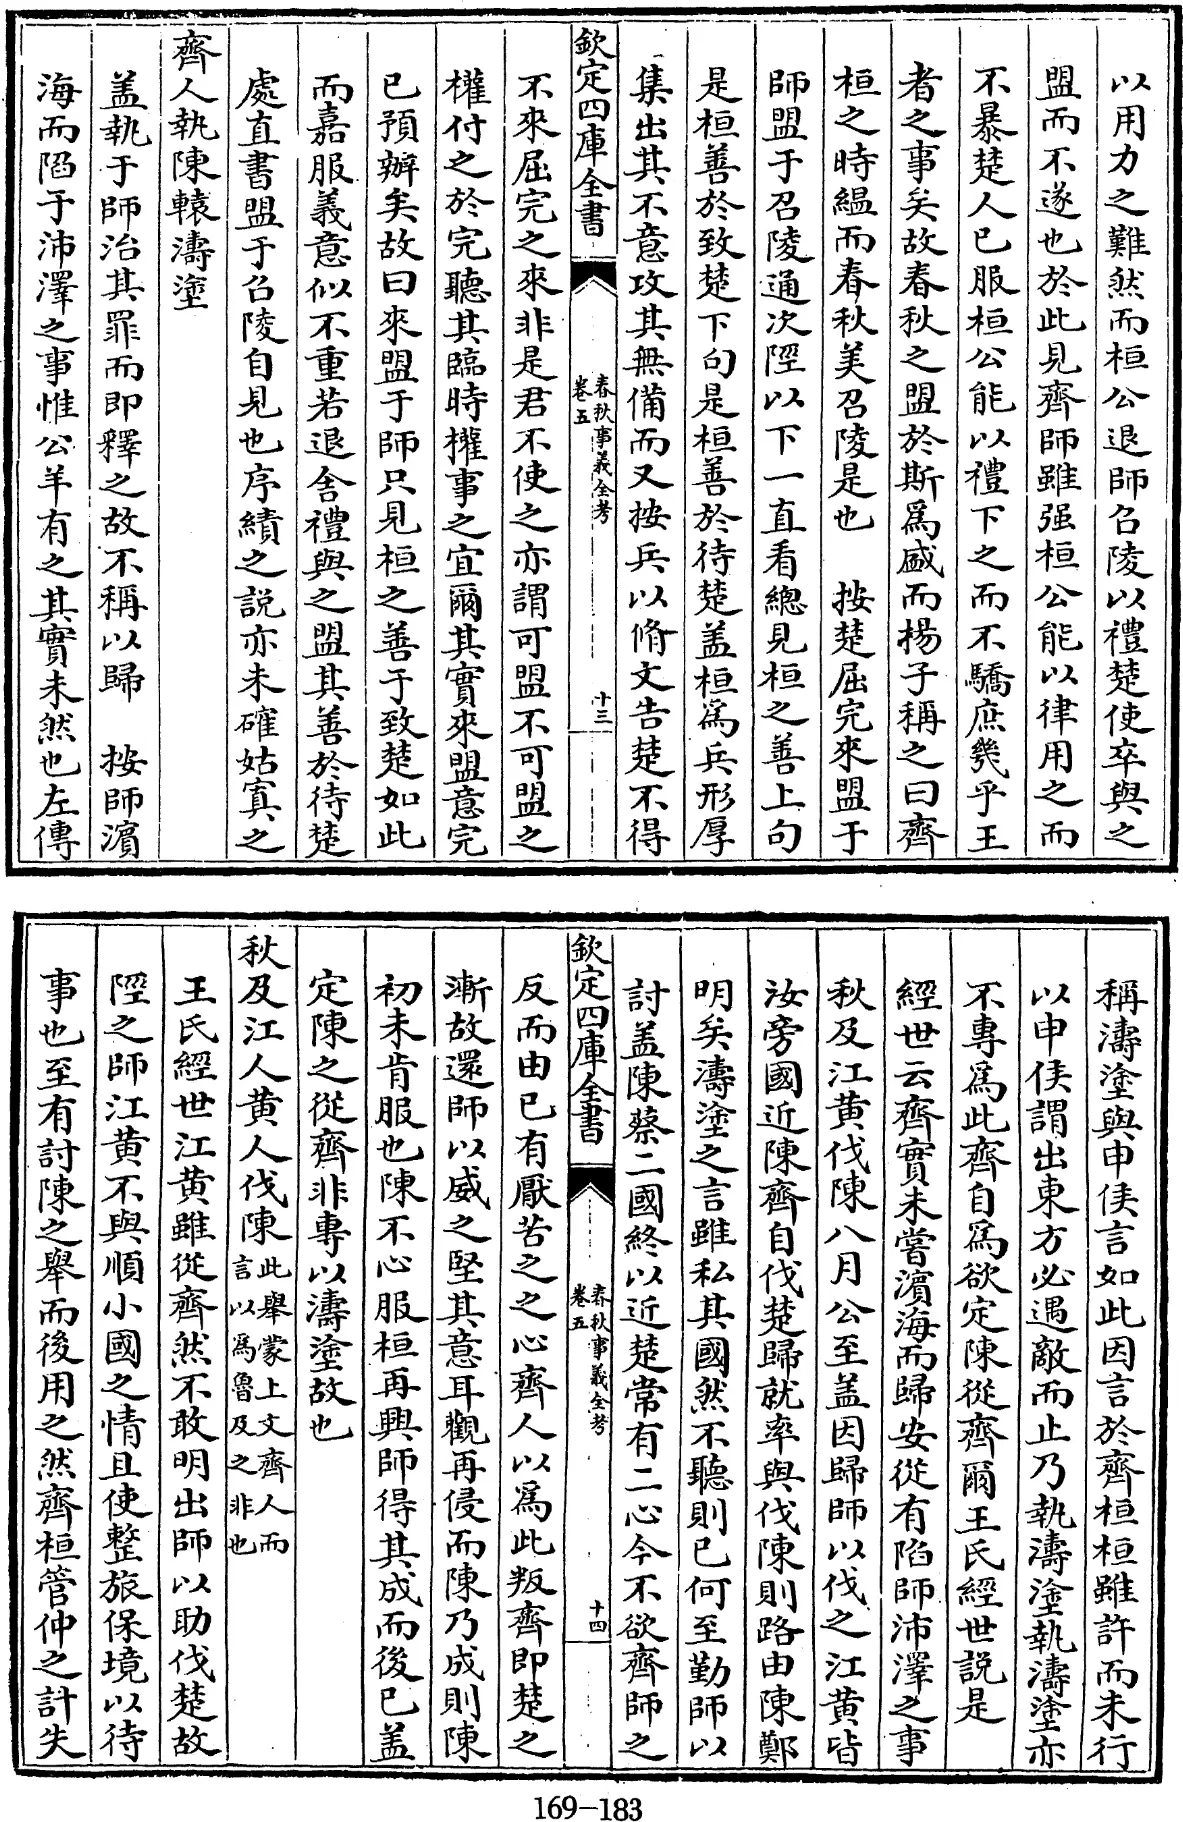 以用力之難然而桓公退師召陵以禮楚使卒與之
盟而不遂也於此見齊師雖强桓公能以律用之而
不暴楚人已服桓公能以禮下之而不驕庶幾乎王
者之事矣故春秋之盟於斯爲盛而揚子稱之曰齊
桓之時緼而春秋美召陵是也 按楚屈完來盟于
師盟于召陵通次陘以下一直看總見桓之善上句
是桓善於致楚下句是桓善於待楚盖桓爲兵形厚
集出其不意攻其無備而又按兵以脩文告楚不得
欽定四庫全書
春秋事義全考
卷五
十三
不來屈完之來非是君不使之亦謂可盟不可盟之
權付之於完聽其臨時權事之宜爾其實來盟意完
已預辦矣故曰來盟于師只見桓之善于致楚如此
而嘉服義意似不重若退舍禮與之盟其善於待楚
處直書盟于召陵自見也序績之說亦未確姑寘之
齊人執陳轅濤塗
盖執于師治其罪而即釋之故不稱以歸 按師濱
海而陷于沛澤之事惟公羊有之其實未然也左傳
稱濤塗與申侯言如此因言於齊桓桓雖許而未行
以申侯謂出東方必遇敵而止乃執濤塗執濤塗亦
不專爲此齊自爲欲定陳從齊爾王氏經世說是
經世云齊實未嘗濱海而歸安從有陷師沛澤之事
秋及江黄伐陳八月公至盖因歸師以伐之江黄皆
汝旁國近陳齊自伐楚歸就率與伐陳則路由陳鄭
明矣濤塗之言雖私其國然不聽則已何至勤師以
討盖陳蔡二國終以近楚常有二心今不欲齊師之
欽定四庫全書
春秋事義全考
卷五
十四
反而由已有厭苦之之心齊人以爲此叛齊即楚之
漸故還師以威之堅其意耳觀再侵而陳乃成則陳
初未肯服也陳不心服桓再興師得其成而後已盖
定陳之從齊非專以濤塗故也
秋及江人黄人伐陳此舉蒙上文齊人而
言以爲魯及之非也
王氏經世江黄雖從齊然不敢明出師以助伐楚故
陘之師江黄不與順小國之情且使整旅保境以待
事也至有討陳之舉而後用之然齊桓管仲之計失
169-183